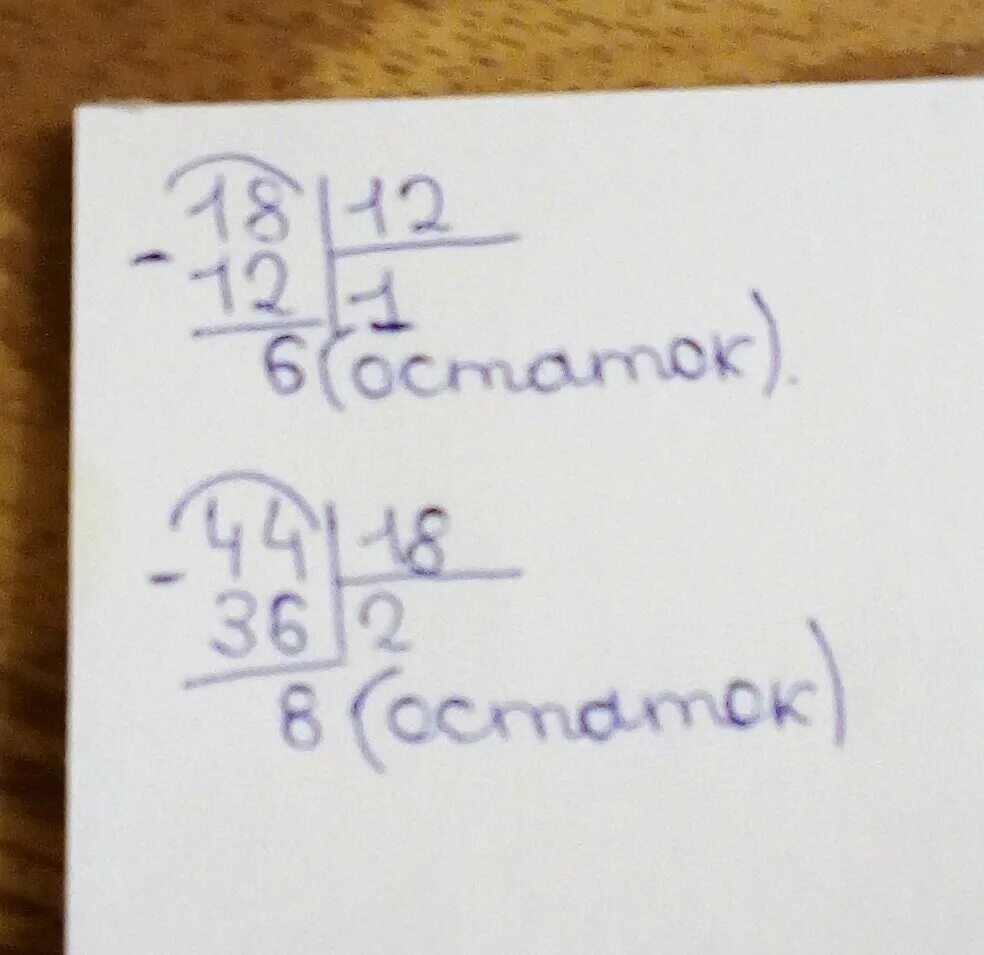 18 | 12
- 12 | 1
6 (остаток).
44 | 18
- 36 | 2
8 (остаток)